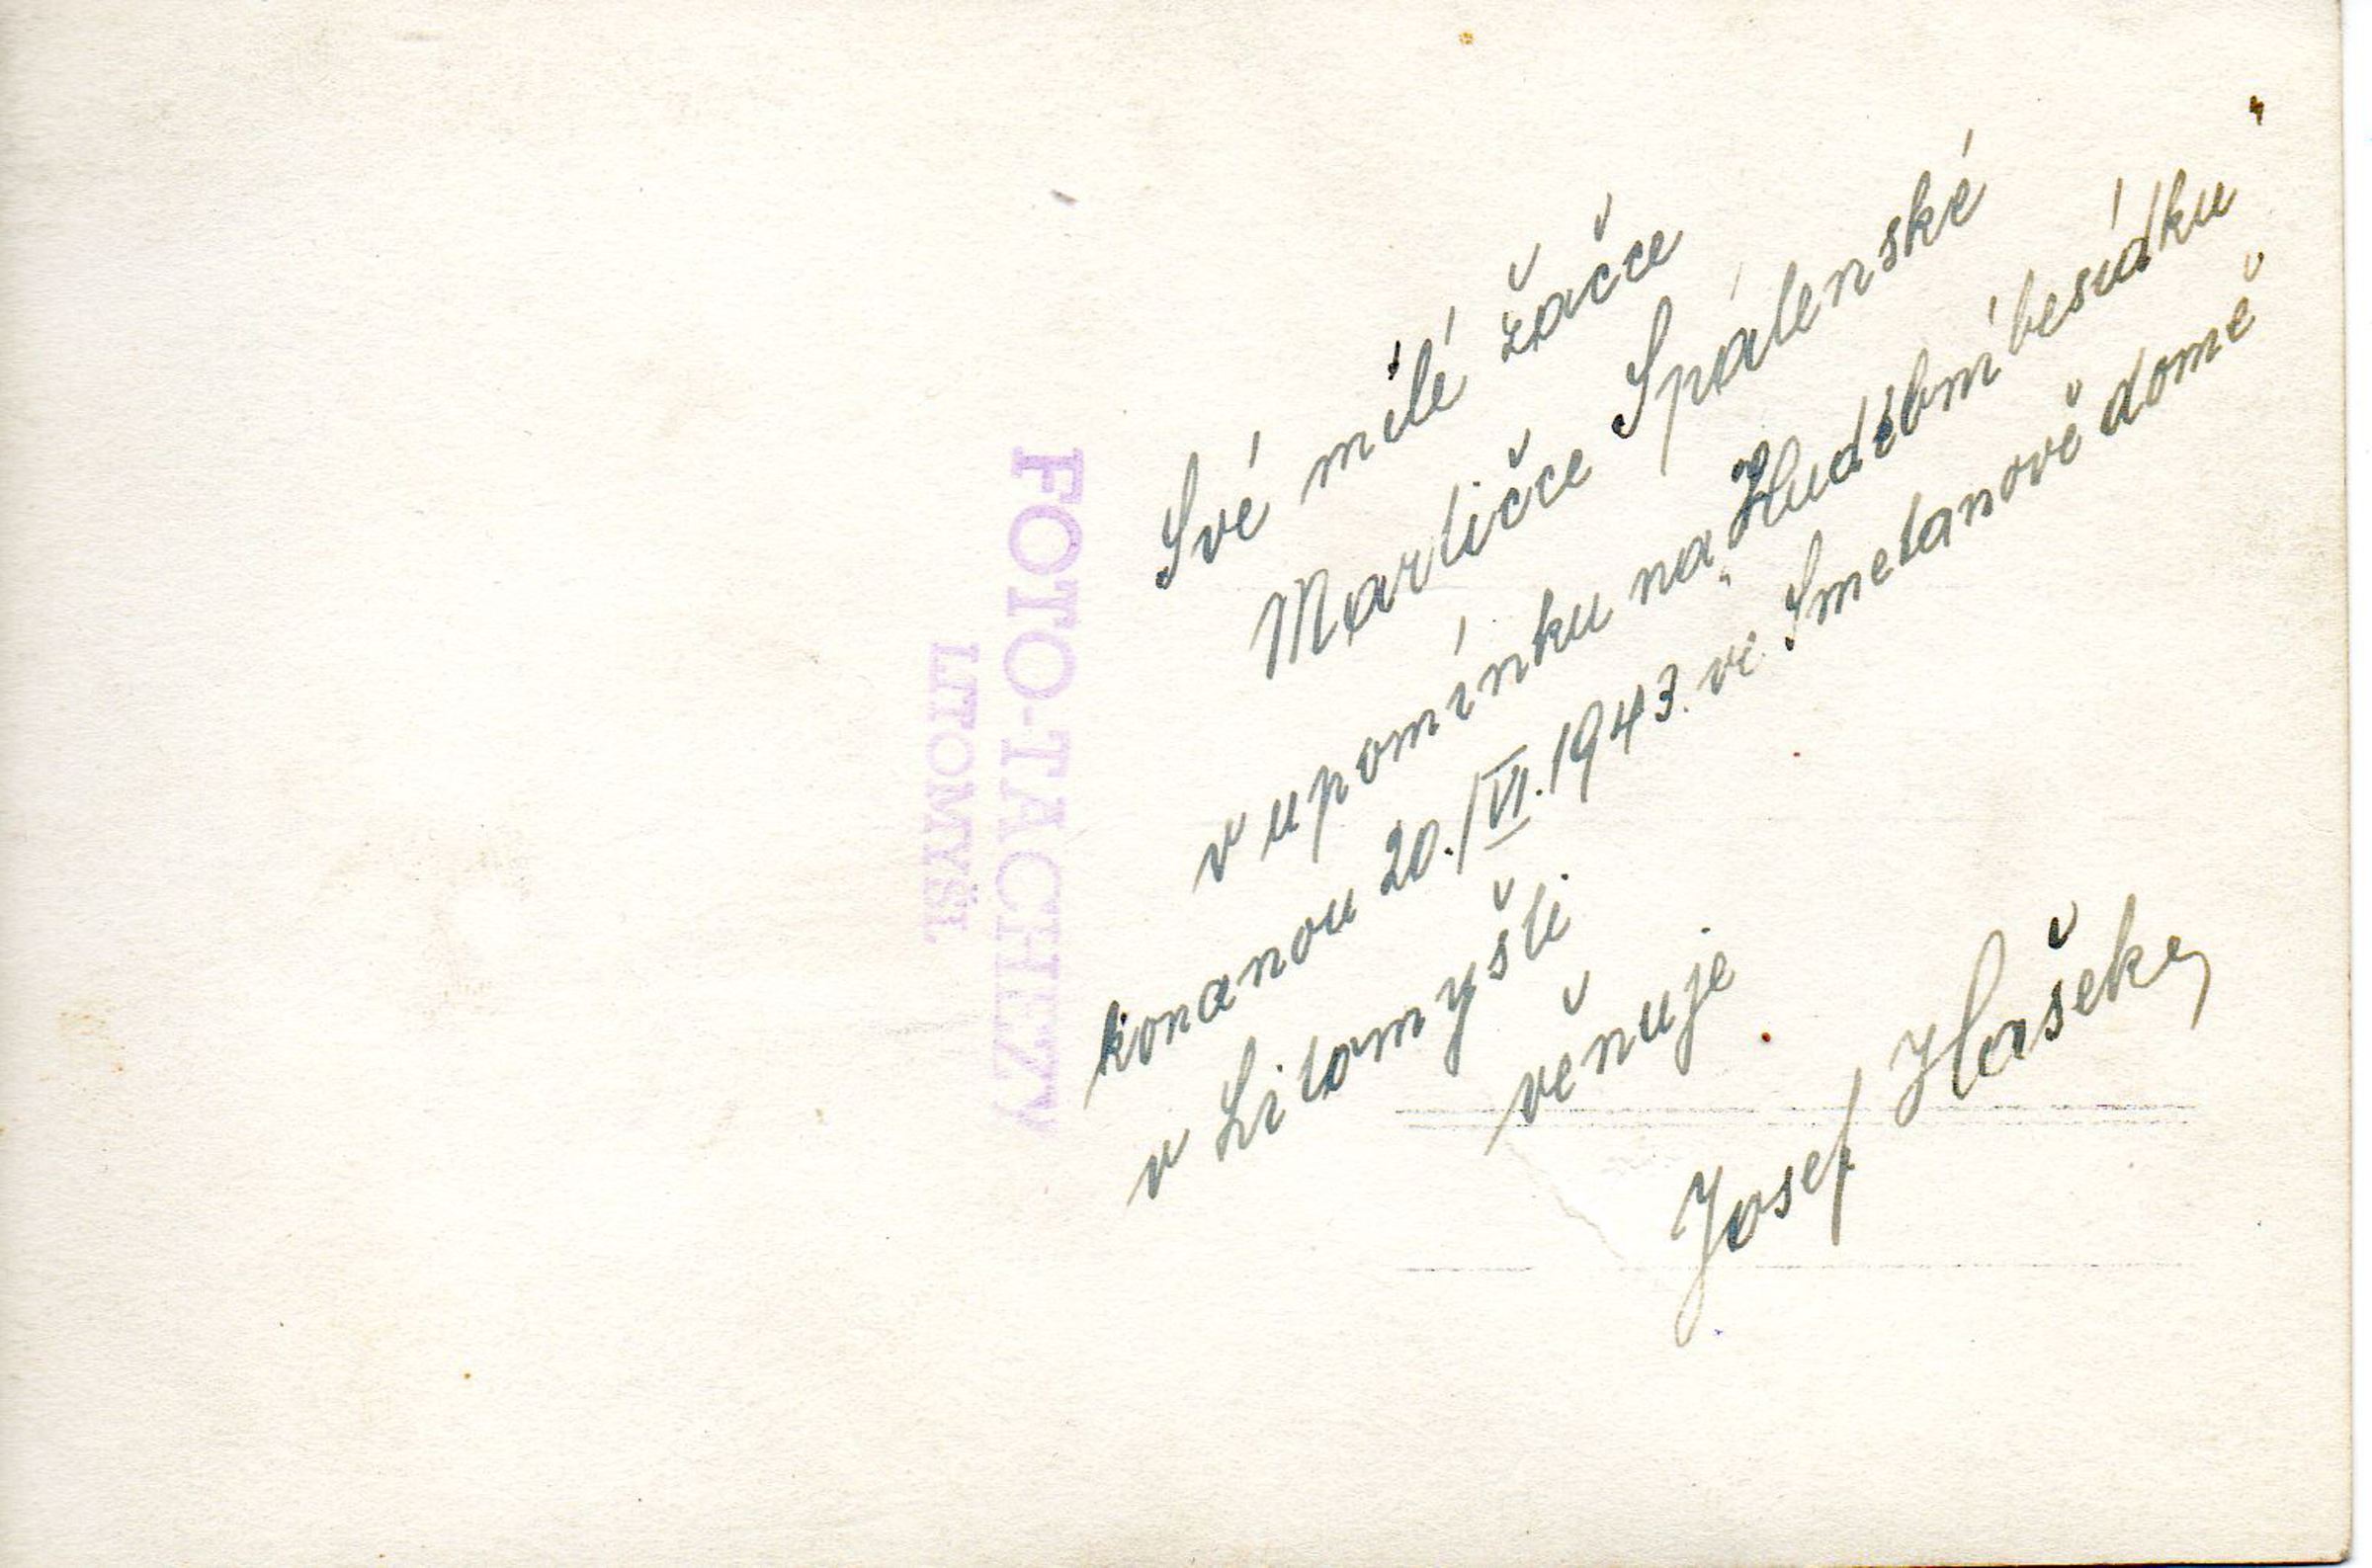 Své milé žačce
Martičce Spálenské
v upomínku na „Hudební besídku"
konanou 20./VI. 1943. ve Smetanově domě
v Litomyšli
věnuje
Josef Hašek
FOTO-TACHEZY
LITOMYŠL